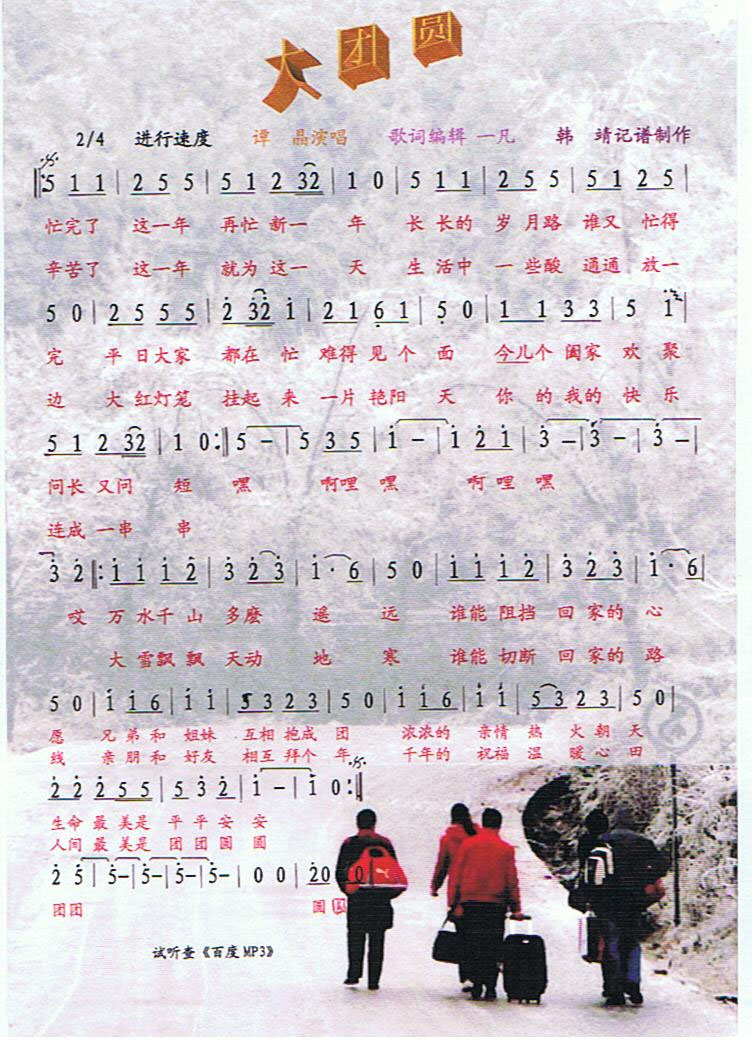 大团圆
2/4 进行速度 谭 晶演唱 歌词编辑 一凡 韩 靖记谱制作
5 1 1 | 2 5 5 | 5 1 2 32 | 1 0 | 5 1 1 | 2 5 5 | 5 1 2 5 |
忙完了 这一年 再忙 新一 年 长 长的 岁 月路 谁又 忙得
辛苦了 这一年 就为 这一 天 生 活中 一 些酸 通通 放一
5 0 | 2 5 5 5 | 2 32 1 | 2 1 6 1 | 5 0 | 1 1 3 3 | 5 1 |
完 平 日大家 都在 忙 难得 见 个 面 今儿个 阖家 欢 聚
边 大 红灯笼 挂起 来 一片 艳阳 天 你 的 我的 快 乐
5 1 2 32 | 1 0 :|| 5 - | 5 3 5 | 1 - | 1 2 1 | 3 - | 3 - | 3 - |
问长 又问 短 嘿 啊哩 嘿 啊 哩 嘿
连成 一串 串
3 2 ||: 1 1 1 2 | 3 2 3 | 1 · 6 | 5 0 | 1 1 1 2 | 3 2 3 | 1 · 6 |
哎 万 水千 山 多麼 遥 远 谁能 阻挡 回 家的 心
大 雪飘 飘 天动 地 寒 谁能 切断 回 家的 路
5 0 | 1 1 6 | 1 1 | 5 3 2 3 | 5 0 | 1 1 6 | 1 1 | 5 3 2 3 | 5 0 |
愿 兄 弟 和 姐妹 互相 抱成 团 浓浓的 亲情 热 火 朝 天
线 亲 朋 和 好友 相互 拜个 年 千年的 祝福 温 暖 心 田
2 2 2 5 5 | 5 3 2 | 1 - | 1 0 :||
生命 最 美是 平 平 安 安
人间 最 美是 团 团 圆 圆
2 5 | 5- | 5- | 5- | 5- | 0 0 | 20 0
团团 圆 圆
试听查《百度MP3》